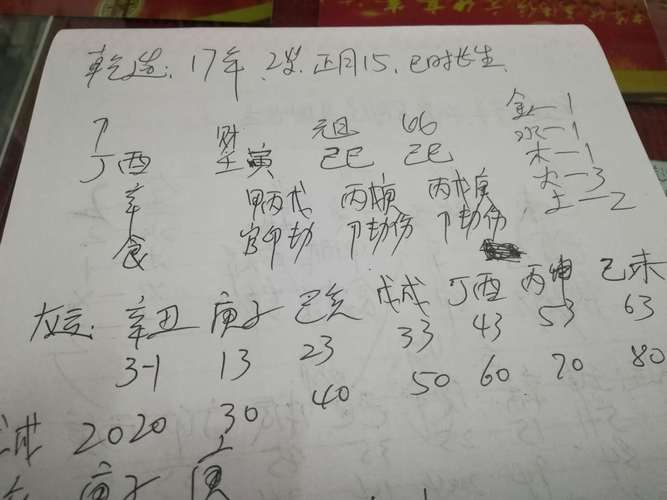 乾造:17年、2岁.正月15.巳时长生
卩 财 元旦 比
丁酉 壬寅 己巳 己巳
金—1
水—1
木—1
火—3
土—2
辛 甲丙戊 丙戊庚 丙戊庚
食 官卩劫 卩劫伤 卩劫伤
大运:辛丑 庚子 己亥 戊戌 丁酉 丙申 己未
3-1 13 23 33 43 53 63
2020 30 40 50 60 70 80
庚子